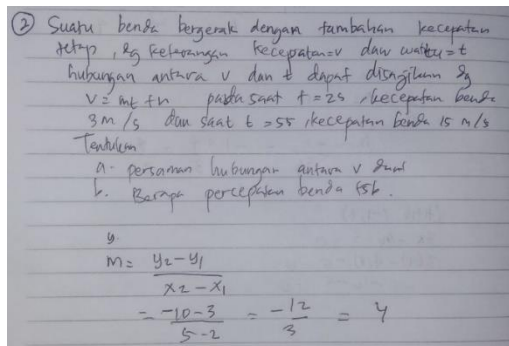 ② Suatu benda bergerak dengan tambahan kecepatan
tetap, dg keterangan kecepatan=v dan waktu=t
hubungan antara v dan t dapat disajikan dg
v = mt + n pada saat t = 2s, kecepatan benda
3 m/s dan saat t = 5s, kecepatan benda 15 m/s
Tentukan
a. persaman hubungan antara v dan
b. Berapa percepatan benda tsb.
y
m = y2-y1
x2-x1
= -10-3 = -12 = 4
5-2 3